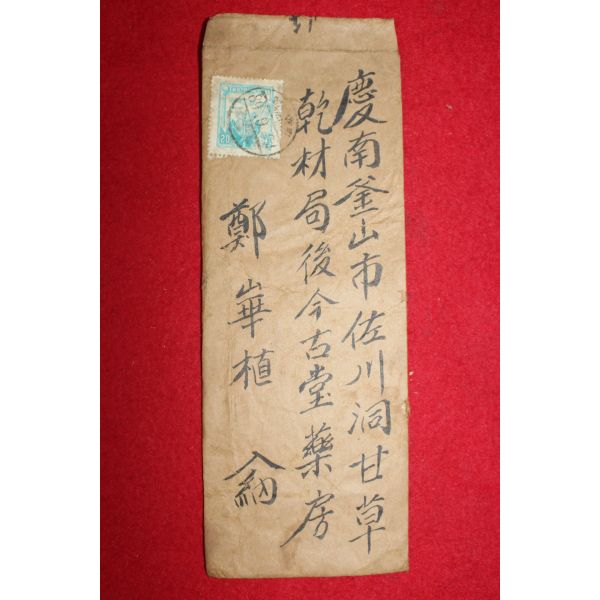 慶南釜山市佐川洞甘草
乾材局後今古堂藥房
鄭崋植 入納
20